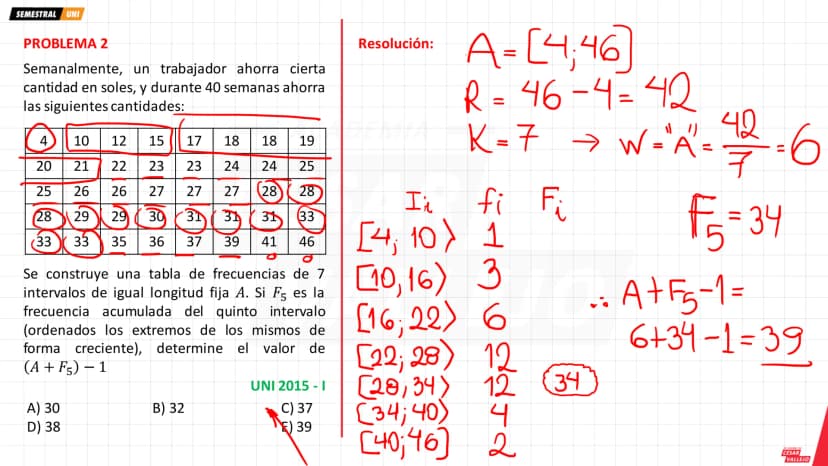 SEMESTRAL UNI
PROBLEMA 2
Semanalmente, un trabajador ahorra cierta
cantidad en soles, y durante 40 semanas ahorra
las siguientes cantidades:
4 10 12 15 17 18 18 19
20 21 22 23 23 24 24 25
25 26 26 27 27 27 28 28
28 29 29 30 31 31 31 33
33 33 35 36 37 39 41 46
Se construye una tabla de frecuencias de 7
intervalos de igual longitud fija A. Si F₅ es la
frecuencia acumulada del quinto intervalo
(ordenados los extremos de los mismos de
forma creciente), determine el valor de
(A + F₅) − 1
UNI 2015 - I
A) 30 B) 32 C) 37
D) 38 E) 39
Resolución:
A = [4;46]
R = 46 − 4 = 42
K = 7 → W = "A" = 42/7 = 6
Ii fi Fi
[4; 10⟩ 1
[10,16⟩ 3
[16;22⟩ 6
[22;28⟩ 12
[28,34⟩ 12 34
[34;40⟩ 4
[40;46] 2
F₅ = 34
∴ A + F₅ − 1 =
6 + 34 − 1 = 39
CESAR
VALLEJO